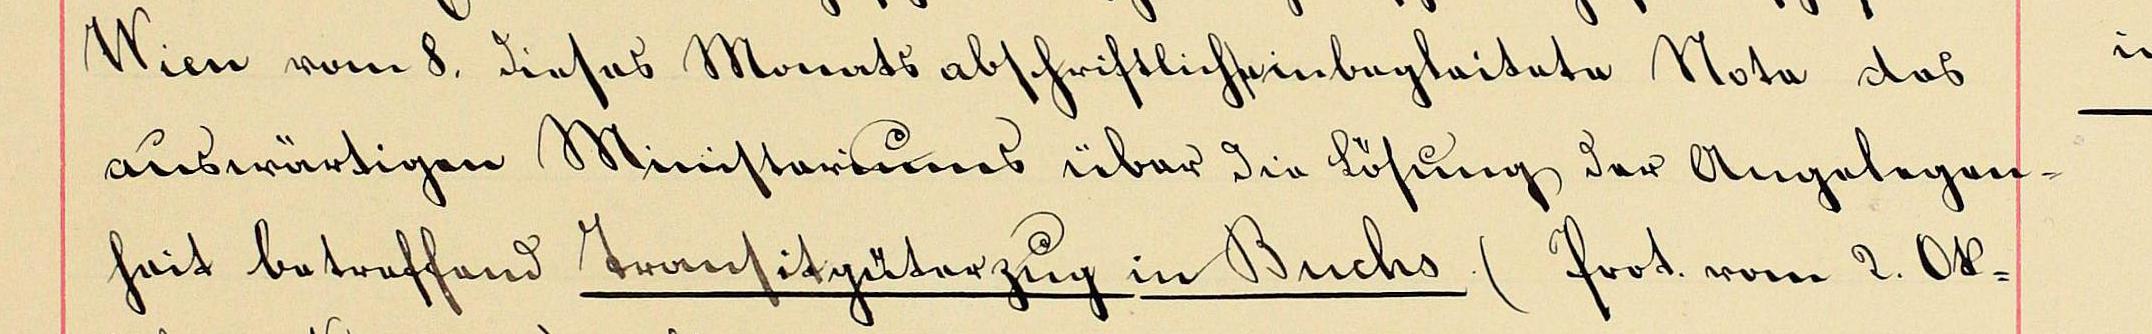 Wien vom 8. dieses Monats abschriftlich einbegleitete Note des
auswärtigen Ministeriums über die Lösung der Angelegen-
heit betreffend Transitgüterzug in Buchs (Prot. vom 2. Ok-